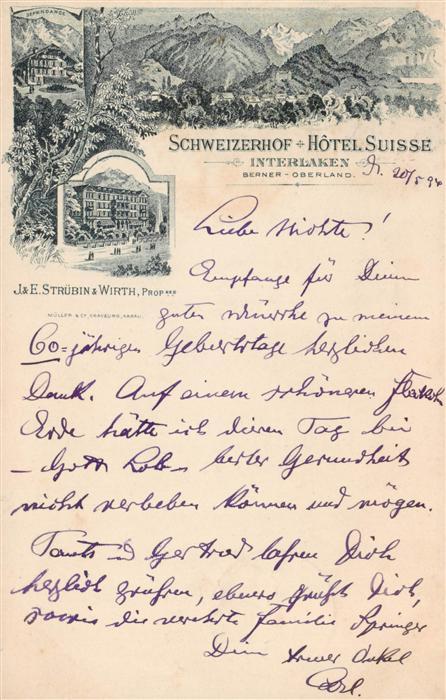 DEPENDANCE
SCHWEIZERHOF + HÔTEL SUISSE
INTERLAKEN
BERNER - OBERLAND.
20/5 94
J. & E. STRÜBIN & WIRTH, PROP
MÜLLER & Cº, AARAU.
Liebe Nichte!
Empfange für Deine
guten Wünsche zu meinem
60=jährigen Geburtstage herzlichen
Dank. Auf einem schöneren Fleck
Erde hätte ich diesen Tag bei
- Gott Lob - bester Gesundheit
nicht verleben können und mögen.
Tante u Gertrud lassen Dich
herzlich grüßen, ebenso grüßt Dich,
sowie die verehrte Familie Springer
Dein treuer Onkel